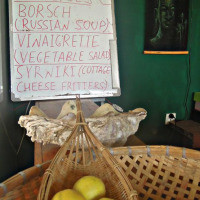 BORSCH
(RUSSIAN SOUP)
VINAIGRETTE
(VEGETABLE SALAD
SYRNIKI (COTTAGE
CHEESE FRITTERS)